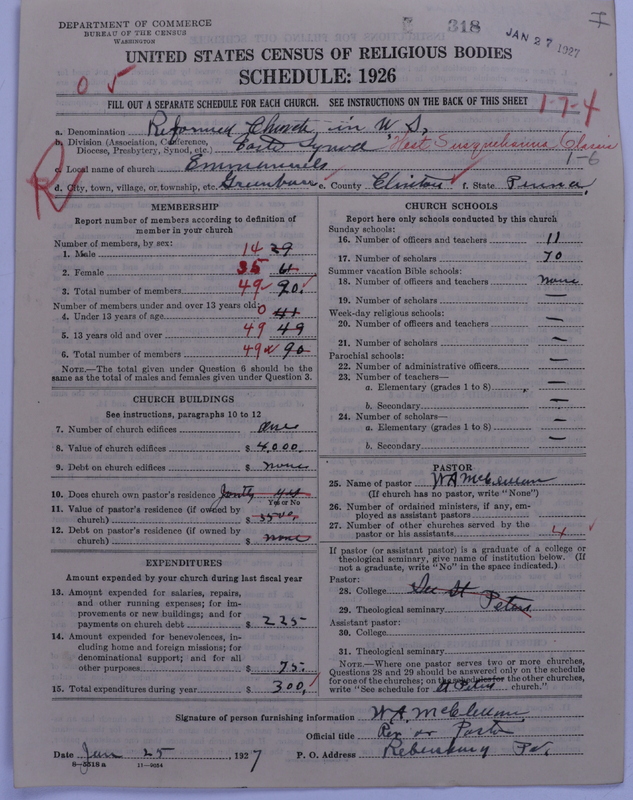 DEPARTMENT OF COMMERCE
BUREAU OF THE CENSUS
WASHINGTON
318
JAN 27 1927
UNITED STATES CENSUS OF RELIGIOUS BODIES
SCHEDULE: 1926
0 5
FILL OUT A SEPARATE SCHEDULE FOR EACH CHURCH. SEE INSTRUCTIONS ON THE BACK OF THIS SHEET
1-7-4
a. Denomination Reformed Church in U.S.
b. Division (Association, Conference, Diocese, Presbytery, Synod, etc.) Synod West Susquehanna Classis
1-6
c. Local name of church Emmanuels
d. City, town, village, or township, etc. Greenburr e. County Clinton f. State Penna.
MEMBERSHIP
Report number of members according to definition of
member in your church
Number of members, by sex:
1. Male 14 29
2. Female 35 61
3. Total number of members 49 90.
Number of members under and over 13 years old:
4. Under 13 years of age 0 41
5. 13 years old and over 49 49
6. Total number of members 49 90
NOTE.—The total given under Question 6 should be
same as the total of males and females given under Question 3.
CHURCH BUILDINGS
See instructions, paragraphs 10 to 12
7. Number of church edifices one
8. Value of church edifices $ 4,000.
9. Debt on church edifices $ none
10. Does church own pastor's residence Jointly yes
Yes or No
11. Value of pastor's residence (if owned by
church) $ 3500.
12. Debt on pastor's residence (if owned by
church) $ none
EXPENDITURES
Amount expended by your church during last fiscal year
13. Amount expended for salaries, repairs,
and other running expenses; for im-
provements or new buildings; and for
payments on church debt $ 225
14. Amount expended for benevolences, in-
cluding home and foreign missions; for
denominational support; and for all
other purposes $ 75.
15. Total expenditures during year $ 300.
CHURCH SCHOOLS
Report here only schools conducted by this church
Sunday schools:
16. Number of officers and teachers 11
17. Number of scholars 70
Summer vacation Bible schools:
18. Number of officers and teachers none
19. Number of scholars —
Week-day religious schools:
20. Number of officers and teachers —
21. Number of scholars —
Parochial schools:
22. Number of administrative officers —
23. Number of teachers—
a. Elementary (grades 1 to 8) —
b. Secondary —
24. Number of scholars—
a. Elementary (grades 1 to 8) —
b. Secondary —
PASTOR
25. Name of pastor W A McClellan
(If church has no pastor, write "None")
26. Number of ordained ministers, if any, em-
ployed as assistant pastors
27. Number of other churches served by the
pastor or his assistants 4
If pastor (or assistant pastor) is a graduate of a college or
theological seminary, give name of institution below. (If
not a graduate, write "No" in the space indicated.)
Pastor:
28. College See St
29. Theological seminary Peters
Assistant pastor:
30. College
31. Theological seminary
NOTE.—Where one pastor serves two or more churches,
Questions 28 and 29 should be answered only on the schedule
for one of the churches; on the schedules for the other churches,
write "See schedule for St Peters church."
Signature of person furnishing information W. A. McClellan
Official title Pastor
Date Jan 25 1927 P. O. Address Rebersburg Pa.
8—5518 a 11—9034